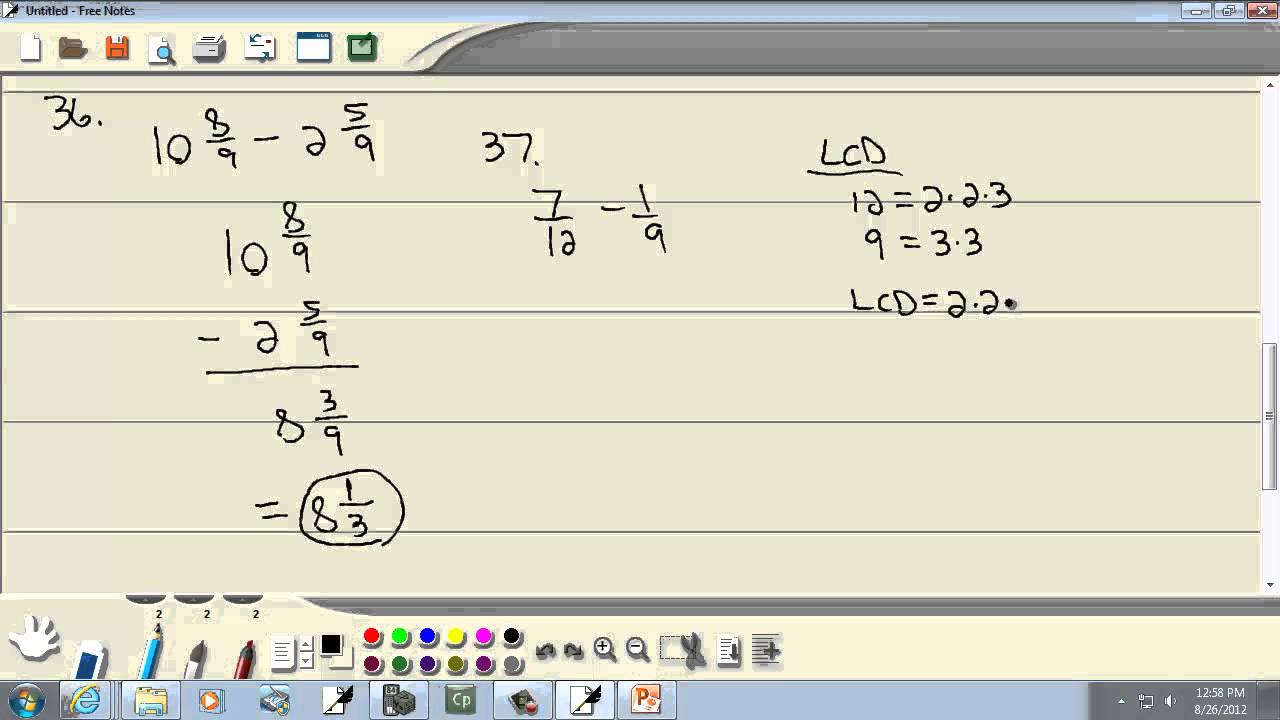 Untitled - Free Notes
36.
10 8/9 - 2 5/9
10 8/9
- 2 5/9
8 3/9
= 8 1/3
37.
7/12 - 1/9
LCD
12 = 2·2·3
9 = 3·3
LCD = 2·2·
2 2 2
Cp
12:58 PM
8/26/2012